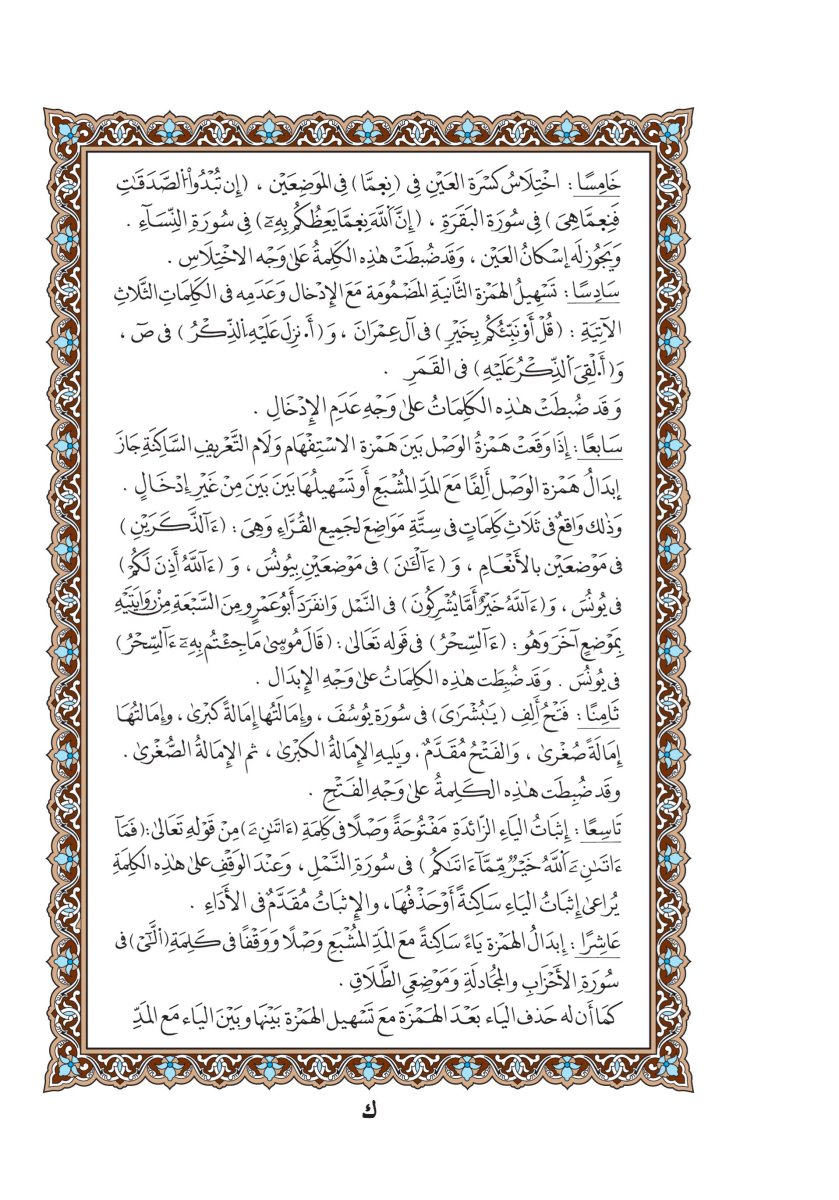 خَامِسًا : اخْتِلَاسُ كَسْرَةِ العَيْنِ فِي (نِعِمَّا) فِي المَوْضِعَيْنِ ، (إِن تُبْدُوا۟ الصَّدَقَٰتِ
فَنِعِمَّا هِىَ) فِي سُورَةِ البَقَرَةِ ، (إِنَّ اللَّهَ نِعِمَّا يَعِظُكُم بِهِۦٓ) فِي سُورَةِ النِّسَآءِ .
وَيَجُوزُ لَه إِسْكَانُ العَيْنِ ، وَقَد ضُبِطَتْ هَٰذِهِ الكَلِمَةُ عَلَىٰ وَجْهِ الاخْتِلَاسِ .
سَادِسًا : تَسْهِيلُ الهَمْزَةِ الثَّانِيَةِ المَضْمُومَة مَعَ الإِدْخَال وَعَدَمِه فِى الكَلِمَاتِ الثَّلَاثِ
الآتِيَةِ : (قُلْ أَوُ۬نَبِّئُكُم بِخَيْرٍ) فى آلِ عِمْرَانَ ، وَ (أَ۟.نزِلَ عَلَيْهِ الذِّكْرُ) فى صٓ ،
وَ (أَ۟.لْقِىَ الذِّكْرُ عَلَيْهِ) فى القَمَرِ .
وَقَد ضُبِطَتْ هَٰذِهِ الكَلِمَاتُ عَلَىٰ وَجْهِ عَدَمِ الإِدْخَالِ .
سَابِعًا : إِذَا وَقَعَتْ هَمْزَةُ الوَصْلِ بَيْنَ هَمْزَةِ الاسْتِفْهَامِ وَلَامِ التَّعْرِيفِ السَّاكِنَةِ جَازَ
إِبدَالُ هَمْزَةِ الوَصْلِ أَلِفًا مَعَ المَدِّ المُشْبَعِ أَو تَسْهِيلُهَا بَيْنَ بَيْنَ مِنْ غَيْرِ إِدْخَالٍ .
وَذَٰلك وَاقِعٌ فى ثَلَاثِ كَلِمَاتٍ فى سِتَّةِ مَوَاضِعَ لِجَمِيعِ القُرَّاءِ وَهِىَ : (ءَآلذَّكَرَيْنِ)
فى مَوْضِعَيْنِ بالأَنْعَامِ ، وَ (ءَآلْـَٰٔنَ) فى مَوْضِعَيْنِ بِيُونُسَ ، وَ (ءَآللَّهُ أَذِنَ لَكُمْ)
فى يُونُسَ ، وَ (ءَآللَّهُ خَيْرٌ أَمَّا يُشْرِكُونَ) فى النَّمْلِ وَانفَرَدَ أَبُو عَمْرٍو مِنَ السَّبْعَةِ مِنْ رِوَايَتَيْهِ
بِمَوْضِعٍ آخَرَ وَهُو : (ءَآلسِّحْرُ) فى قَوْلِهِ تَعَالَىٰ : (قَالَ مُوسَىٰ مَا جِئْتُم بِهِۦٓ ءَآلسِّحْرُ)
فى يُونُسَ . وَقَد ضُبِطَت هَٰذِهِ الكَلِمَاتُ عَلَىٰ وَجْهِ الإِبدَال .
ثَامِنًا : فَتْحُ أَلِفِ (يَٰبُشْرَاىَ) فى سُورَةِ يُوسُفَ ، وَإِمَالَتُهَا إِمَالَةً كُبْرَىٰ ، وَإِمَالتُهَا
إِمَالَةً صُغْرَىٰ ، وَالفَتْحُ مُقَدَّمٌ ، وَيَلِيهِ الإِمَالَةُ الكُبْرَىٰ ، ثم الإِمَالَةُ الصُّغْرَىٰ .
وقَد ضُبِطَت هَٰذِهِ الكَلِمةُ عَلَىٰ وَجْهِ الفَتْحِ .
تَاسِعًا : إِثبَاتُ اليَاءِ الزَّائِدَةِ مَفْتُوحَةً وَصْلًا فى كَلِمَةِ (ءَاتَىٰنِۦَ) مِنْ قَوْلِهِ تَعَالَىٰ : (فَمَآ
ءَاتَىٰنِۦَ اللَّهُ خَيْرٌ مِّمَّآ ءَاتَىٰكُم) فى سُورَةِ النَّمْلِ ، وَعِنْدَ الوَقْفِ عَلَىٰ هَٰذِهِ الكَلِمَةِ
يُرَاعَىٰ إِثبَاتُ اليَاءِ سَاكِنَةً أَوْ حَذْفُهَا ، وَالإِثبَاتُ مُقَدَّمٌ فى الأَدَاءِ .
عَاشِرًا : إِبدَالُ الهَمْزَةِ يَاءً سَاكِنَةً مَعَ المَدِّ المُشْبَعِ وَصْلًا وَوَقْفًا فى كَلِمَةِ (الَّٰٓىْ) فى
سُورَةِ الأَحْزَابِ والمُجَادلَةِ وَمَوْضِعَىِ الطَّلَاقِ .
كَمَا أَن له حَذفَ اليَاءِ بَعْدَ الهَمْزَةِ مَعَ تَسْهِيلِ الهَمْزَةِ بَيْنَهَا وَبَيْنَ اليَاءِ مَعَ المَدِّ
ك